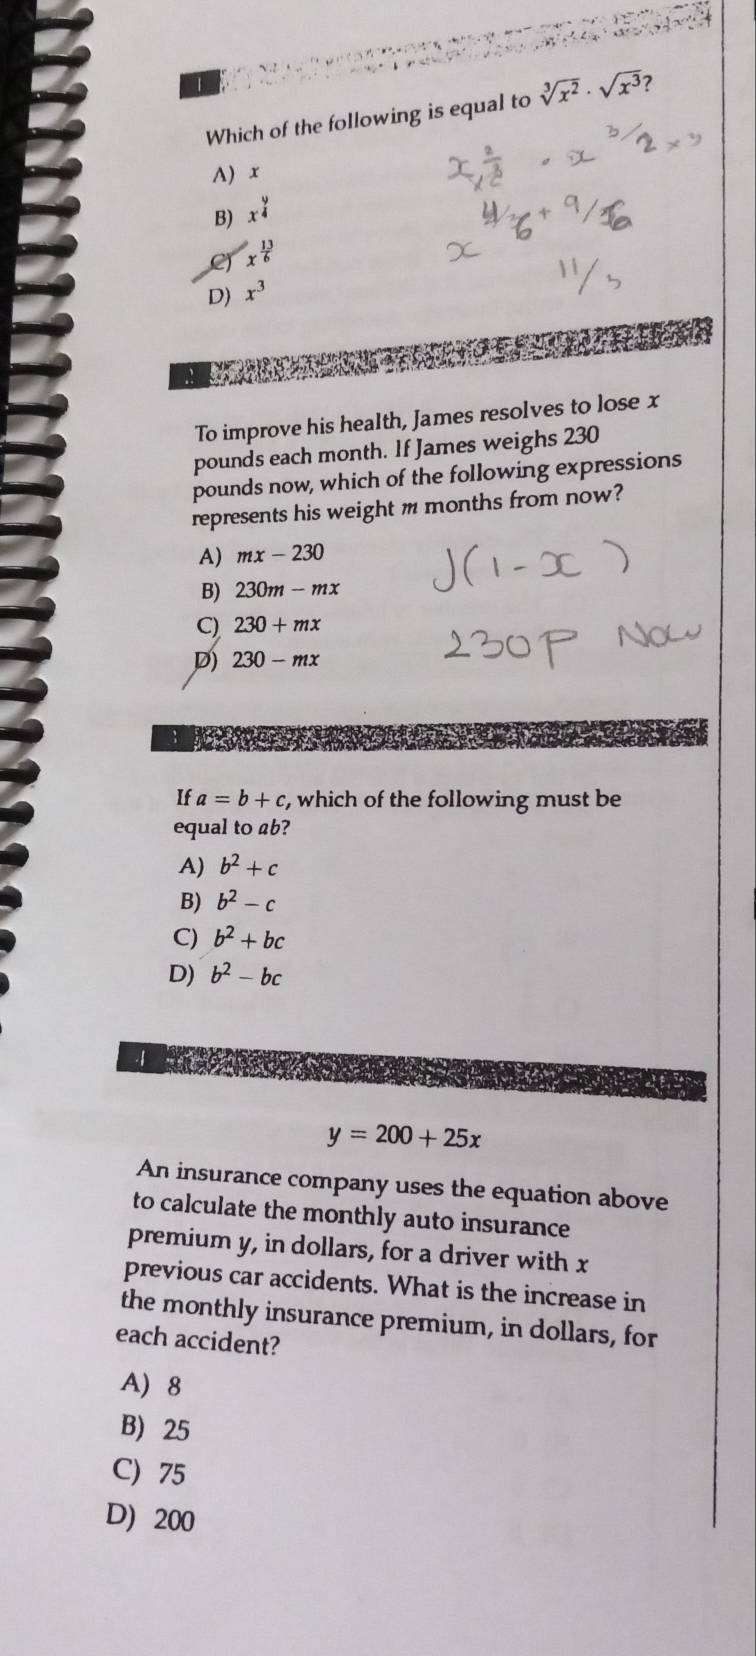 1
Which of the following is equal to ∛x² · √x³?
A) x
B) x^(9/4)
C) x^(13/6)
D) x³
x^(2/3) · x^(3/2)
x 4/6 + 9/6
11/3
2
To improve his health, James resolves to lose x
pounds each month. If James weighs 230
pounds now, which of the following expressions
represents his weight m months from now?
A) mx − 230
B) 230m − mx
C) 230 + mx
D) 230 − mx
J(1 - x)
230P Now
3
If a = b + c, which of the following must be
equal to ab?
A) b² + c
B) b² − c
C) b² + bc
D) b² − bc
4
y = 200 + 25x
An insurance company uses the equation above
to calculate the monthly auto insurance
premium y, in dollars, for a driver with x
previous car accidents. What is the increase in
the monthly insurance premium, in dollars, for
each accident?
A) 8
B) 25
C) 75
D) 200